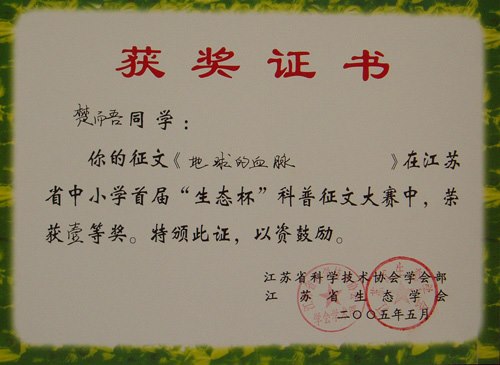 获奖证书
楚雨吾同学：
你的征文《地球的血脉》在江苏
省中小学首届“生态杯”科普征文大赛中，荣
获壹等奖。特颁此证，以资鼓励。
江苏省科学技术协会学会部
江苏省生态学会
二〇〇五年五月